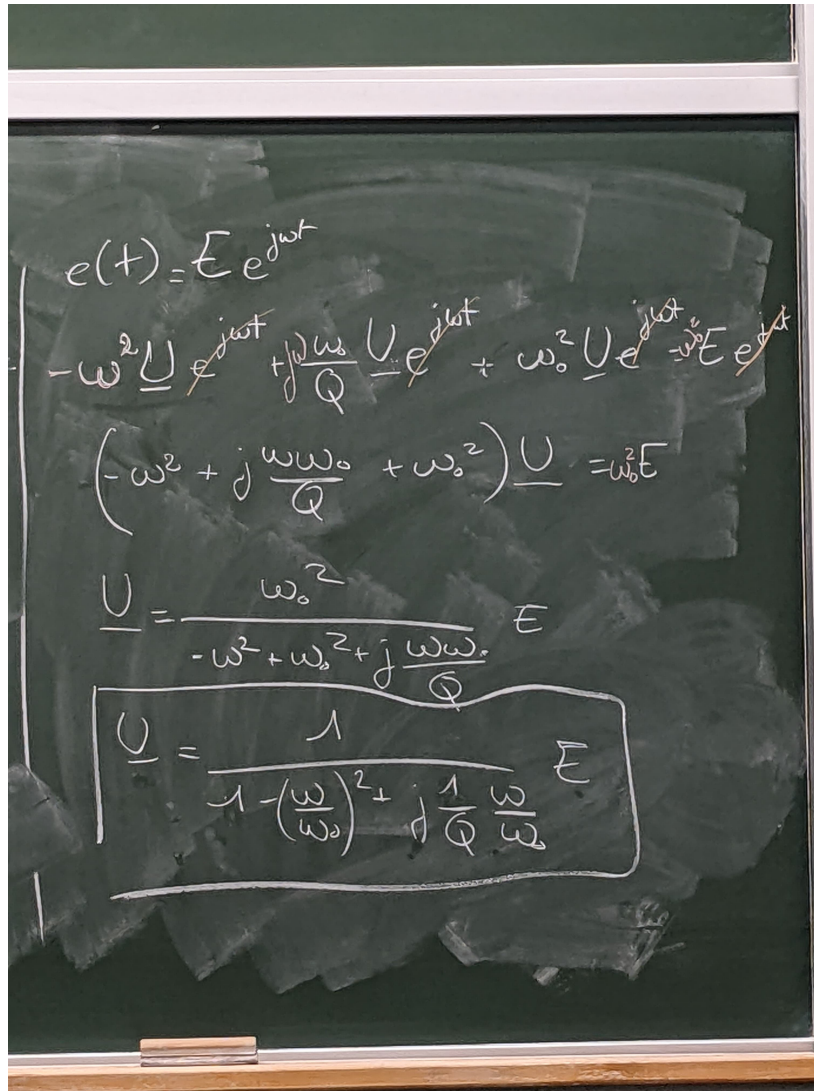 e(t) = E e^{jωt}
-ω² U̲ e^{jωt} + jω ω₀/Q U̲ e^{jωt} + ω₀² U̲ e^{jωt} = ω₀² E e^{jωt}
(-ω² + j ωω₀/Q + ω₀²) U̲ = ω₀² E
U̲ = ω₀² / (-ω² + ω₀² + j ωω₀/Q) E
U̲ = 1 / (1 - (ω/ω₀)² + j 1/Q ω/ω₀) E